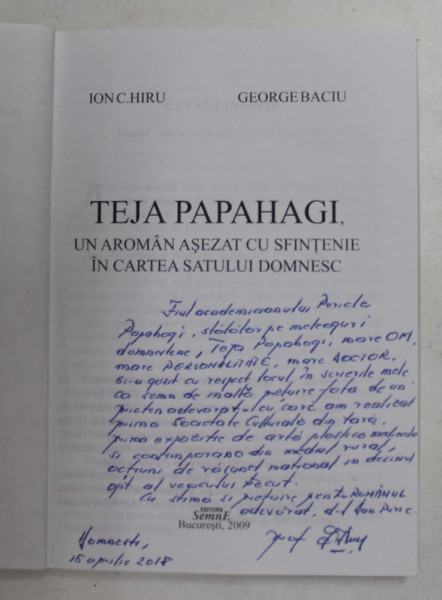 ION C.HIRU GEORGE BACIU
TEJA PAPAHAGI,
UN AROMÂN AȘEZAT CU SFINȚENIE
ÎN CARTEA SATULUI DOMNESC
Fiul academicianului Pericle
Papahagi, slătător pe meleaguri
domnestene, Teja Papahagi, mare OM,
mare PERSONALITATE, mare DOCTOR,
si-a găsit cu respect locul în scrierile mele
ca semn de înaltă prețuire față de un
prieten adevărat, cu care am realizat
prima Societate Culturală din țară,
prima expoziție de artă plastică modernă
și contemporană din mediul rural,
acțiuni de răsunet național în deceniul
opt al veacului trecut.
Cu stimă și prețuire pentru ROMÂNUL
adevărat, d-l Dan Puric.
EDITURA
SemnE
București, 2009
Domnești,
15 aprilie 2018
Prof